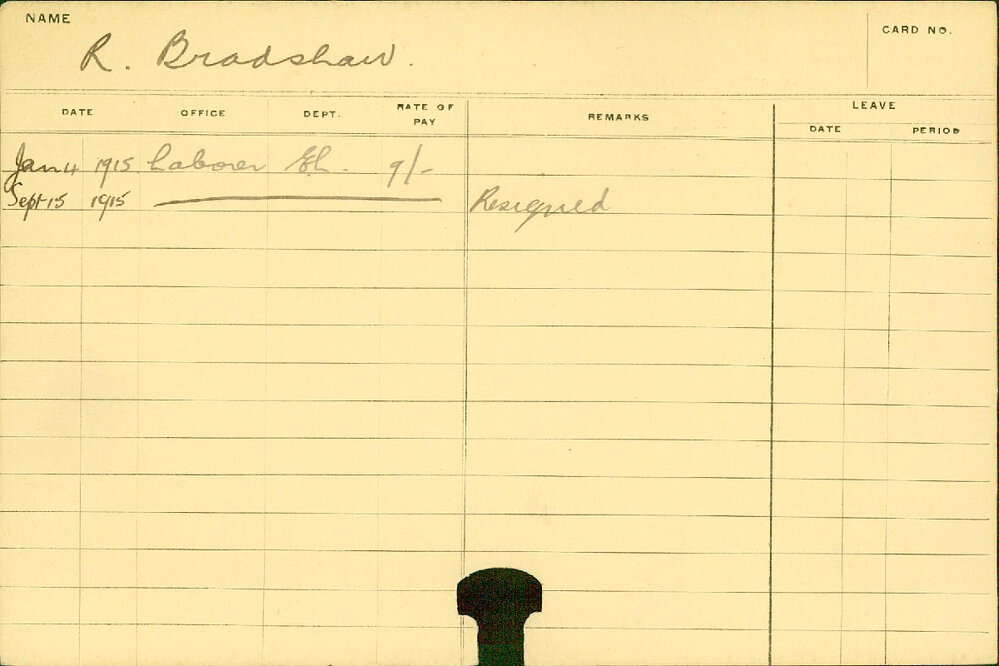 NAME
R. Bradshaw.
CARD NO.
DATE OFFICE DEPT. RATE OF PAY REMARKS LEAVE
DATE PERIOD
Jan 4 1915 Laborer 9/-
Sept 15 1915 Resigned